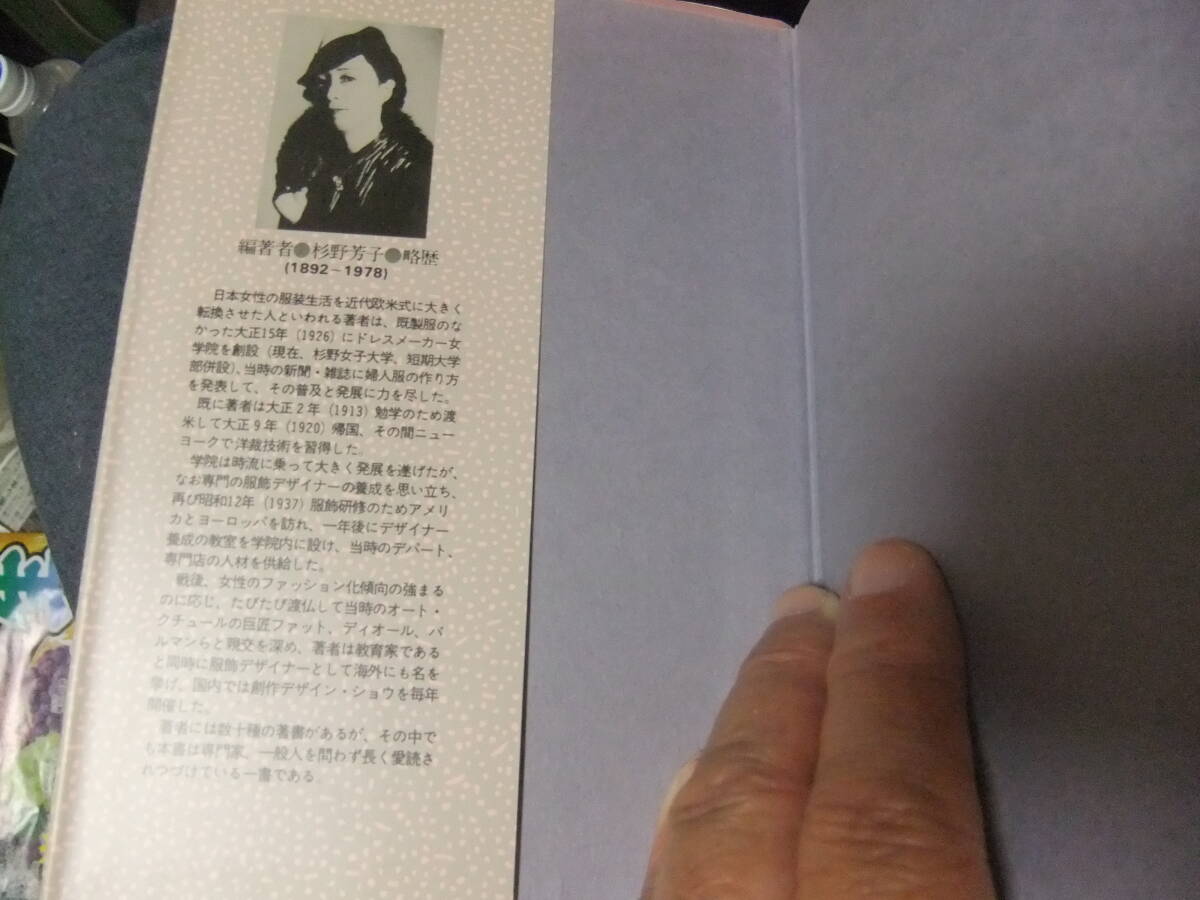 編著者●杉野芳子●略歴
(1892~1978)
日本女性の服装生活を近代欧米式に大きく
転換させた人といわれる著者は、既製服のな
かった大正15年(1926)にドレスメーカー女
学院を創設(現在、杉野女子大学、短期大学
部併設)、当時の新聞・雑誌に婦人服の作り方
を発表して、その普及と発展に力を尽した。
既に著者は大正2年(1913)勉学のため渡
米して大正9年(1920)帰国、その間ニュー
ヨークで洋裁技術を習得した。
学院は時流に乗って大きく発展を遂げたが、
なお専門の服飾デザイナーの養成を思い立ち、
再び昭和12年(1937)服飾研修のためアメリ
カとヨーロッパを訪れ、一年後にデザイナー
養成の教室を学院内に設け、当時のデパート、
専門店の人材を供給した。
戦後、女性のファッション化傾向の強まる
のに応じ、たびたび渡仏して当時のオート・
クチュールの巨匠ファット、ディオール、バ
ルマンらと親交を深め、著者は教育家である
と同時に服飾デザイナーとして海外にも名を
挙げ、国内では創作デザイン・ショウを毎年
開催した。
著者には数十種の著書があるが、その中で
も本書は専門家、一般人を問わず長く愛読さ
れつづけている一書である。